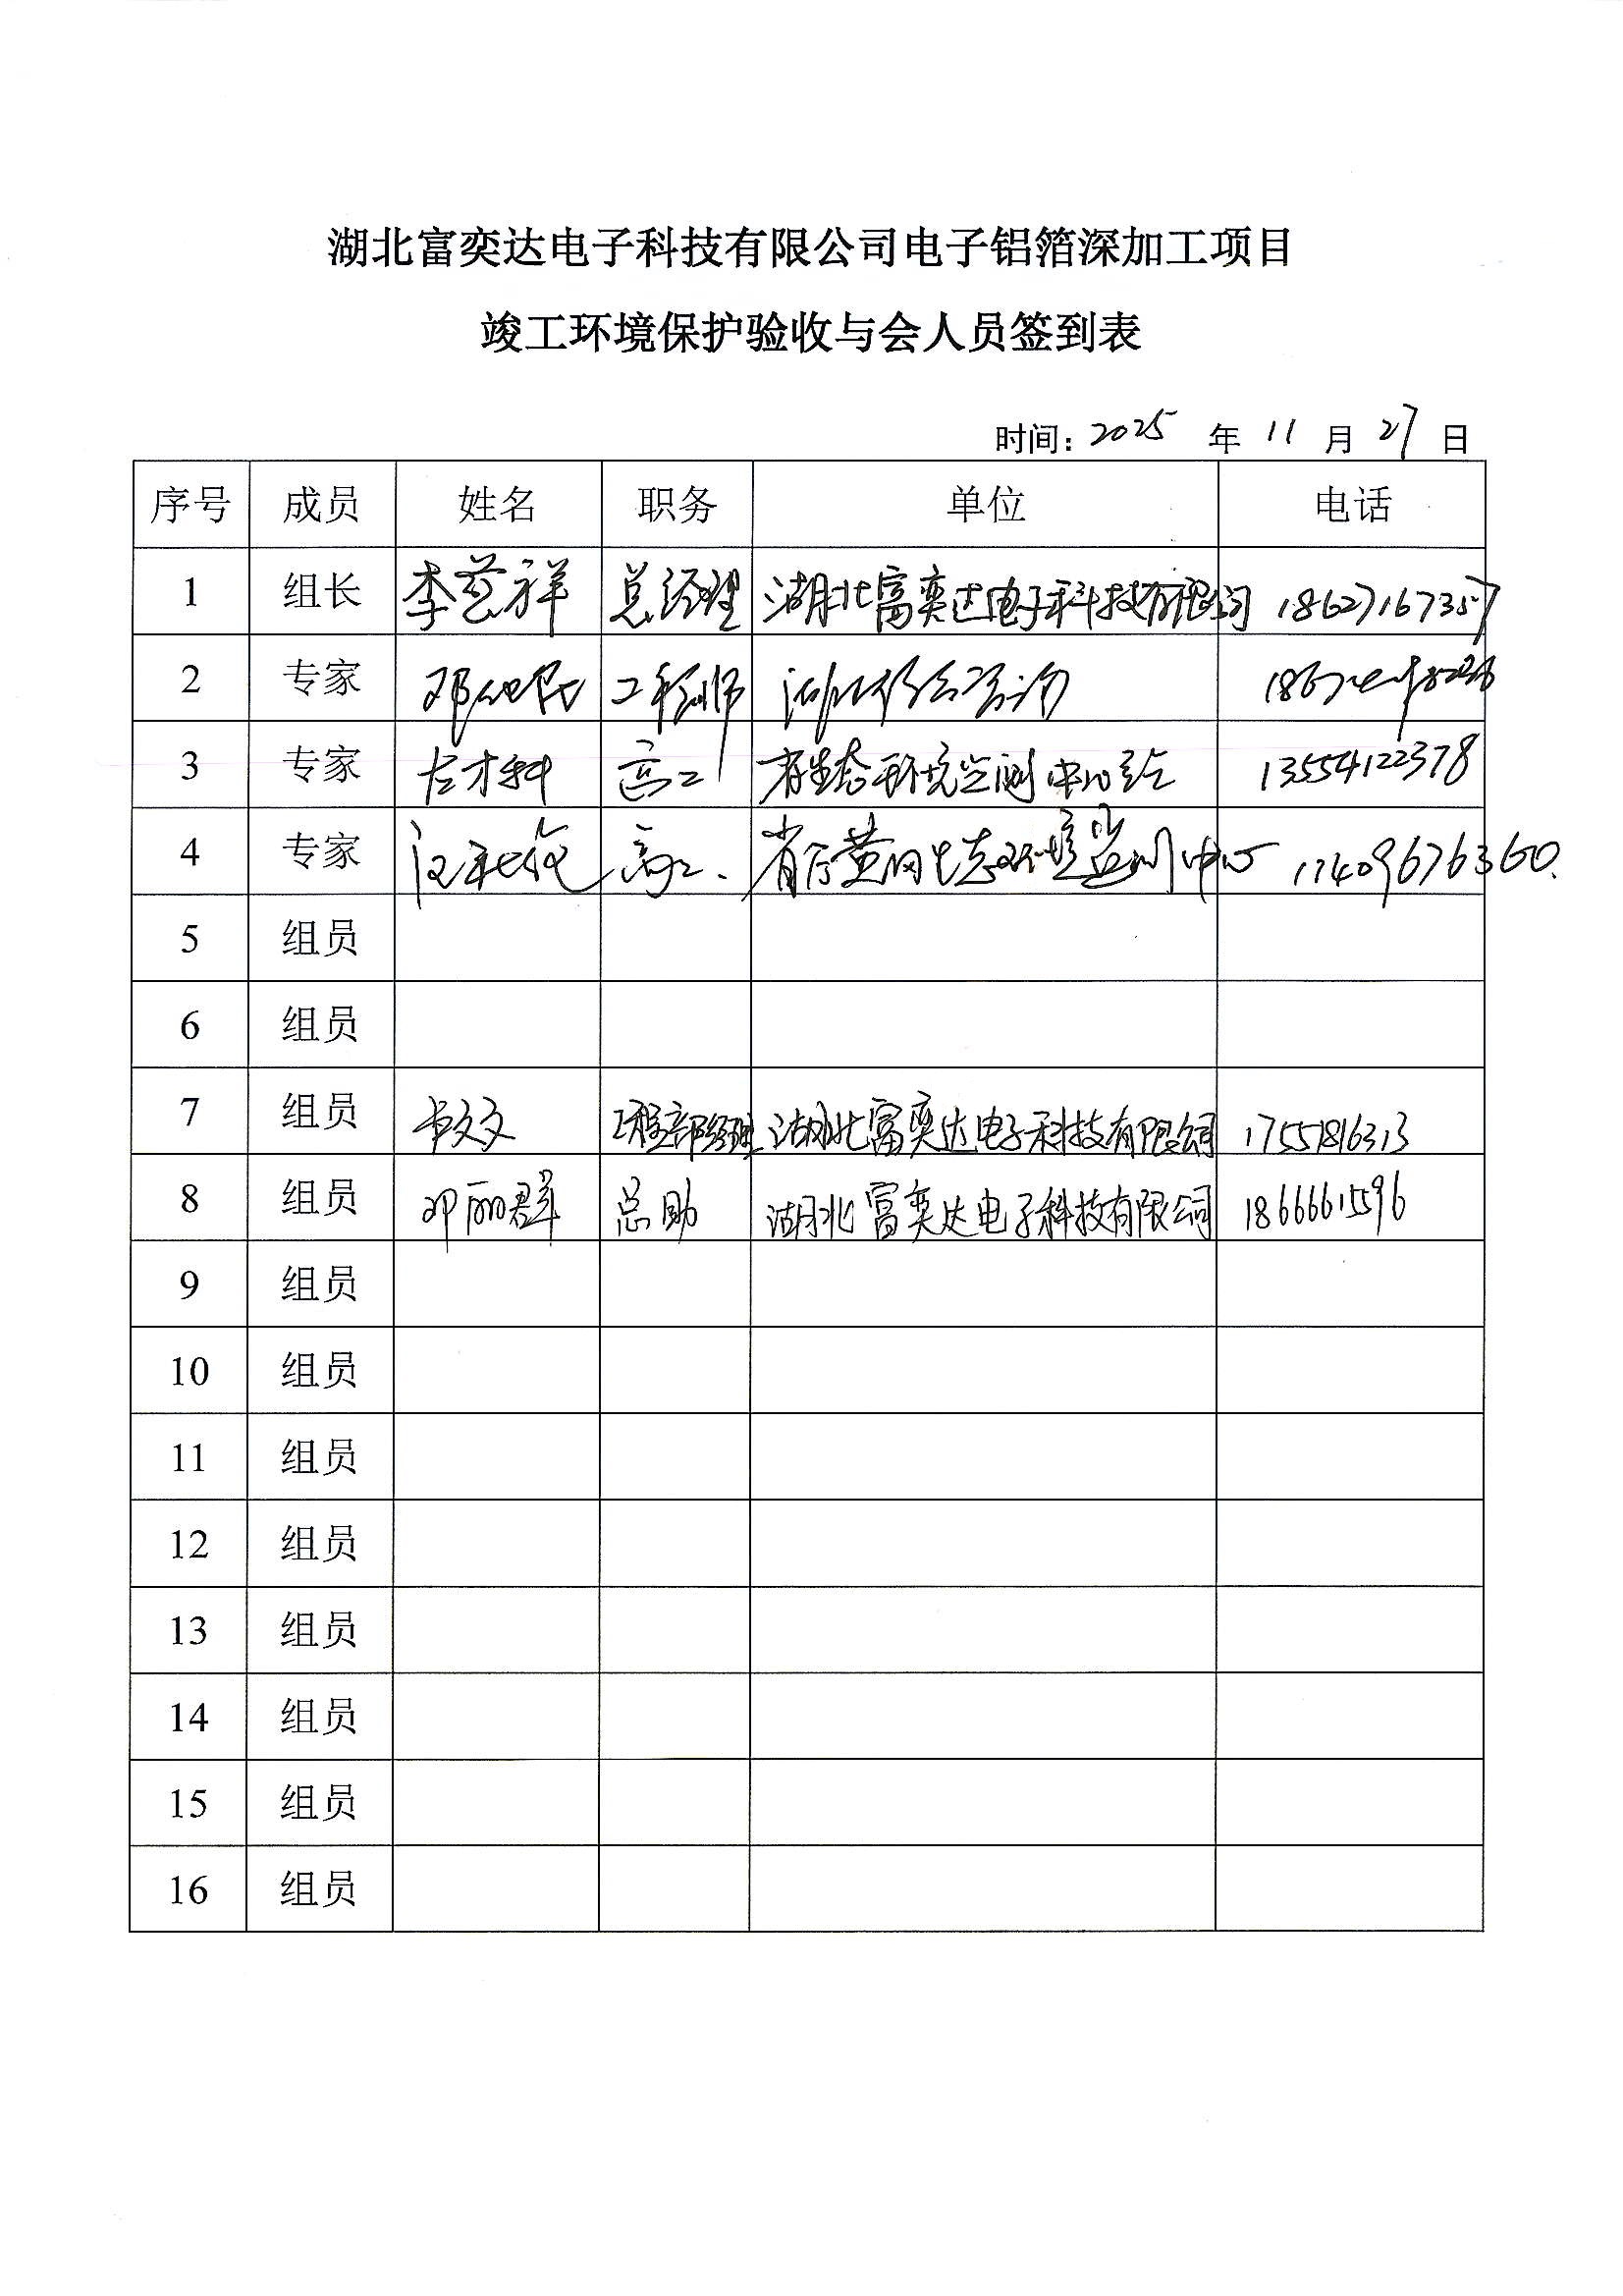 湖北富奕达电子科技有限公司电子铝箔深加工项目
竣工环境保护验收与会人员签到表
时间：2025 年 11 月 27 日
序号 成员 姓名 职务 单位 电话
1 组长 李 祥 总经理 湖北富奕达电子科技有限公司 18627167357
2 专家 邓 工程师
3 专家 高工 省生态环境监测中心站 13554122378
4 专家 汪 高工. 省厅黄冈生态环境监测中心 17409676360.
5 组员
6 组员
7 组员 文文 工程部经理 湖北富奕达电子科技有限公司 17551816313
8 组员 邓丽群 总助 湖北富奕达电子科技有限公司 18666615596
9 组员
10 组员
11 组员
12 组员
13 组员
14 组员
15 组员
16 组员